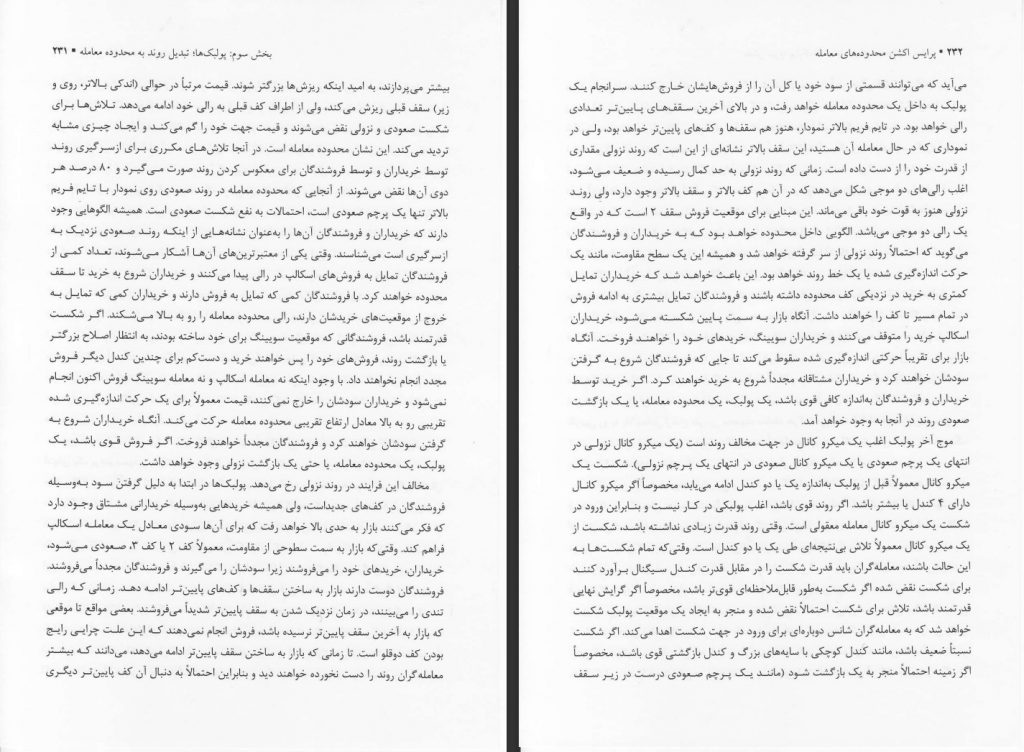 بخش سوم: پولبک‌ها؛ تبدیل روند به محدوده معامله ▪ ۲۳۱
بیشتر می‌پردازند، به امید اینکه ریزش‌ها بزرگتر شوند. قیمت مرتباً در حوالی (اندکی بالاتر، روی و
زیر) سقف قبلی ریزش می‌کند، ولی از اطراف کف قبلی به رالی خود ادامه می‌دهد. تلاش‌ها برای
شکست صعودی و نزولی نقض می‌شوند و قیمت جهت خود را گم می‌کند و ایجاد چیزی مشابه
تردید می‌کند. این نشان محدوده معامله است. در آنجا تلاش‌های مکرری برای ازسرگیری روند
توسط خریداران و توسط فروشندگان برای معکوس کردن روند صورت می‌گیرد و ۸۰ درصد هر
دوی آن‌ها نقض می‌شوند. از آنجایی که محدوده معامله در روند صعودی روی نمودار با تایم فریم
بالاتر تنها یک پرچم صعودی است، احتمالات به نفع شکست صعودی است. همیشه الگوهایی وجود
دارند که خریداران و فروشندگان آن‌ها را به‌عنوان نشانه‌هایی از اینکه روند صعودی نزدیک به
ازسرگیری است می‌شناسند. وقتی یکی از معتبرترین‌های آن‌ها آشکار می‌شوند، تعداد کمی از
فروشندگان تمایل به فروش‌های اسکالپ در رالی پیدا می‌کنند و خریداران شروع به خرید تا سقف
محدوده خواهند کرد. با فروشندگان کمی که تمایل به فروش دارند و خریداران کمی که تمایل به
خروج از موقعیت‌های خریدشان دارند، رالی محدوده معامله را رو به بالا می‌شکند. اگر شکست
قدرتمند باشد، فروشندگانی که موقعیت سویینگ برای خود ساخته بودند، به انتظار اصلاح بزرگتر
یا بازگشت روند، فروش‌های خود را پس خواهند خرید و دست‌کم برای چندین کندل دیگر فروش
مجدد انجام نخواهند داد. با وجود اینکه نه معامله اسکالپ و نه معامله سویینگ فروش اکنون انجام
نمی‌شود و خریداران سودشان را خارج نمی‌کنند، قیمت معمولاً برای یک حرکت اندازه‌گیری شده
تقریبی رو به بالا معادل ارتفاع تقریبی محدوده معامله حرکت می‌کند. آنگاه خریداران شروع به
گرفتن سودشان خواهند کرد و فروشندگان مجدداً خواهند فروخت. اگر فروش قوی باشد، یک
پولبک، یک محدوده معامله، یا حتی یک بازگشت نزولی وجود خواهد داشت.
مخالف این فرایند در روند نزولی رخ می‌دهد. پولبک‌ها در ابتدا به دلیل گرفتن سود به‌وسیله
فروشندگان در کف‌های جدیداست، ولی همیشه خریدهایی به‌وسیله خریدارانی مشتاق وجود دارد
که فکر می‌کنند بازار به حدی بالا خواهد رفت که برای آن‌ها سودی معادل یک معامله اسکالپ
فراهم کند. وقتی‌که بازار به سمت سطوحی از مقاومت، معمولاً کف ۲ یا کف ۳، صعودی می‌شود،
خریداران، خریدهای خود را می‌فروشند زیرا سودشان را می‌گیرند و فروشندگان مجدداً می‌فروشند.
فروشندگان دوست دارند بازار به ساختن سقف‌ها و کف‌های پایین‌تر ادامه دهد. زمانی که رالی
تندی را می‌بینند، در زمان نزدیک شدن به سقف پایین‌تر شدیداً می‌فروشند. بعضی مواقع تا موقعی
که بازار به آخرین سقف پایین‌تر نرسیده باشد، فروش انجام نمی‌دهند که این علت چرایی رایج
بودن کف دوقلو است. تا زمانی که بازار به ساختن سقف پایین‌تر ادامه می‌دهد، می‌دانند که بیشتر
معامله‌گران روند را دست نخورده خواهند دید و بنابراین احتمالاً به دنبال آن کف پایین‌تر دیگری
۲۳۲ ▪ پرایس اکشن محدوده‌های معامله
می‌آید که می‌توانند قسمتی از سود خود یا کل آن را از فروش‌هایشان خارج کنند. سرانجام یک
پولبک به داخل یک محدوده معامله خواهد رفت، و در بالای آخرین سقف‌های پایین‌تر تعدادی
رالی خواهد بود. در تایم فریم بالاتر نمودار، هنوز هم سقف‌ها و کف‌های پایین‌تر خواهد بود، ولی در
نموداری که در حال معامله آن هستید، این سقف بالاتر نشانه‌ای از این است که روند نزولی مقداری
از قدرت خود را از دست داده است. زمانی که روند نزولی به حد کمال رسیده و ضعیف می‌شود،
اغلب رالی‌های دو موجی شکل می‌دهد که در آن هم کف بالاتر و سقف بالاتر وجود دارد، ولی روند
نزولی هنوز به قوت خود باقی می‌ماند. این مبنایی برای موقعیت فروش سقف ۲ است که در واقع
یک رالی دو موجی می‌باشد. الگویی داخل محدوده خواهد بود که به خریداران و فروشندگان
می‌گوید که احتمالاً روند نزولی از سر گرفته خواهد شد و همیشه این یک سطح مقاومت، مانند یک
حرکت اندازه‌گیری شده یا یک خط روند خواهد بود. این باعث خواهد شد که خریداران تمایل
کمتری به خرید در نزدیکی کف محدوده داشته باشند و فروشندگان تمایل بیشتری به ادامه فروش
در تمام مسیر تا کف را خواهند داشت. آنگاه بازار به سمت پایین شکسته می‌شود، خریداران
اسکالپ خرید را متوقف می‌کنند و خریداران سویینگ، خریدهای خود را خواهند فروخت. آنگاه
بازار برای تقریباً حرکتی اندازه‌گیری شده سقوط می‌کند تا جایی که فروشندگان شروع به گرفتن
سودشان خواهند کرد و خریداران مشتاقانه مجدداً شروع به خرید خواهند کرد. اگر خرید توسط
خریداران و فروشندگان به‌اندازه کافی قوی باشد، یک پولبک، یک محدوده معامله، یا یک بازگشت
صعودی روند در آنجا به وجود خواهد آمد.
موج آخر پولبک اغلب یک میکرو کانال در جهت مخالف روند است (یک میکرو کانال نزولی در
انتهای یک پرچم صعودی یا یک میکرو کانال صعودی در انتهای یک پرچم نزولی). شکست یک
میکرو کانال معمولاً قبل از پولبک به‌اندازه یک یا دو کندل ادامه می‌یابد، مخصوصاً اگر میکرو کانال
دارای ۴ کندل یا بیشتر باشد. اگر روند قوی باشد، اغلب پولبکی در کار نیست و بنابراین ورود در
شکست یک میکرو کانال معامله معقولی است. وقتی روند قدرت زیادی نداشته باشد، شکست از
یک میکرو کانال معمولاً تلاش بی‌نتیجه‌ای طی یک یا دو کندل است. وقتی‌که تمام شکست‌ها به
این حالت باشند، معامله‌گران باید قدرت شکست را در مقابل قدرت کندل سیگنال برآورد کنند
برای شکست نقض شده اگر شکست به‌طور قابل‌ملاحظه‌ای قوی‌تر باشد، مخصوصاً اگر گرایش نهایی
قدرتمند باشد، تلاش برای شکست احتمالاً نقض شده و منجر به ایجاد یک موقعیت پولبک شکست
خواهد شد که به معامله‌گران شانس دوباره‌ای برای ورود در جهت شکست اهدا می‌کند. اگر شکست
نسبتاً ضعیف باشد، مانند کندل کوچکی با سایه‌های بزرگ و کندل بازگشتی قوی باشد، مخصوصاً
اگر زمینه احتمالاً منجر به یک بازگشت شود (مانند یک پرچم صعودی درست در زیر سقف